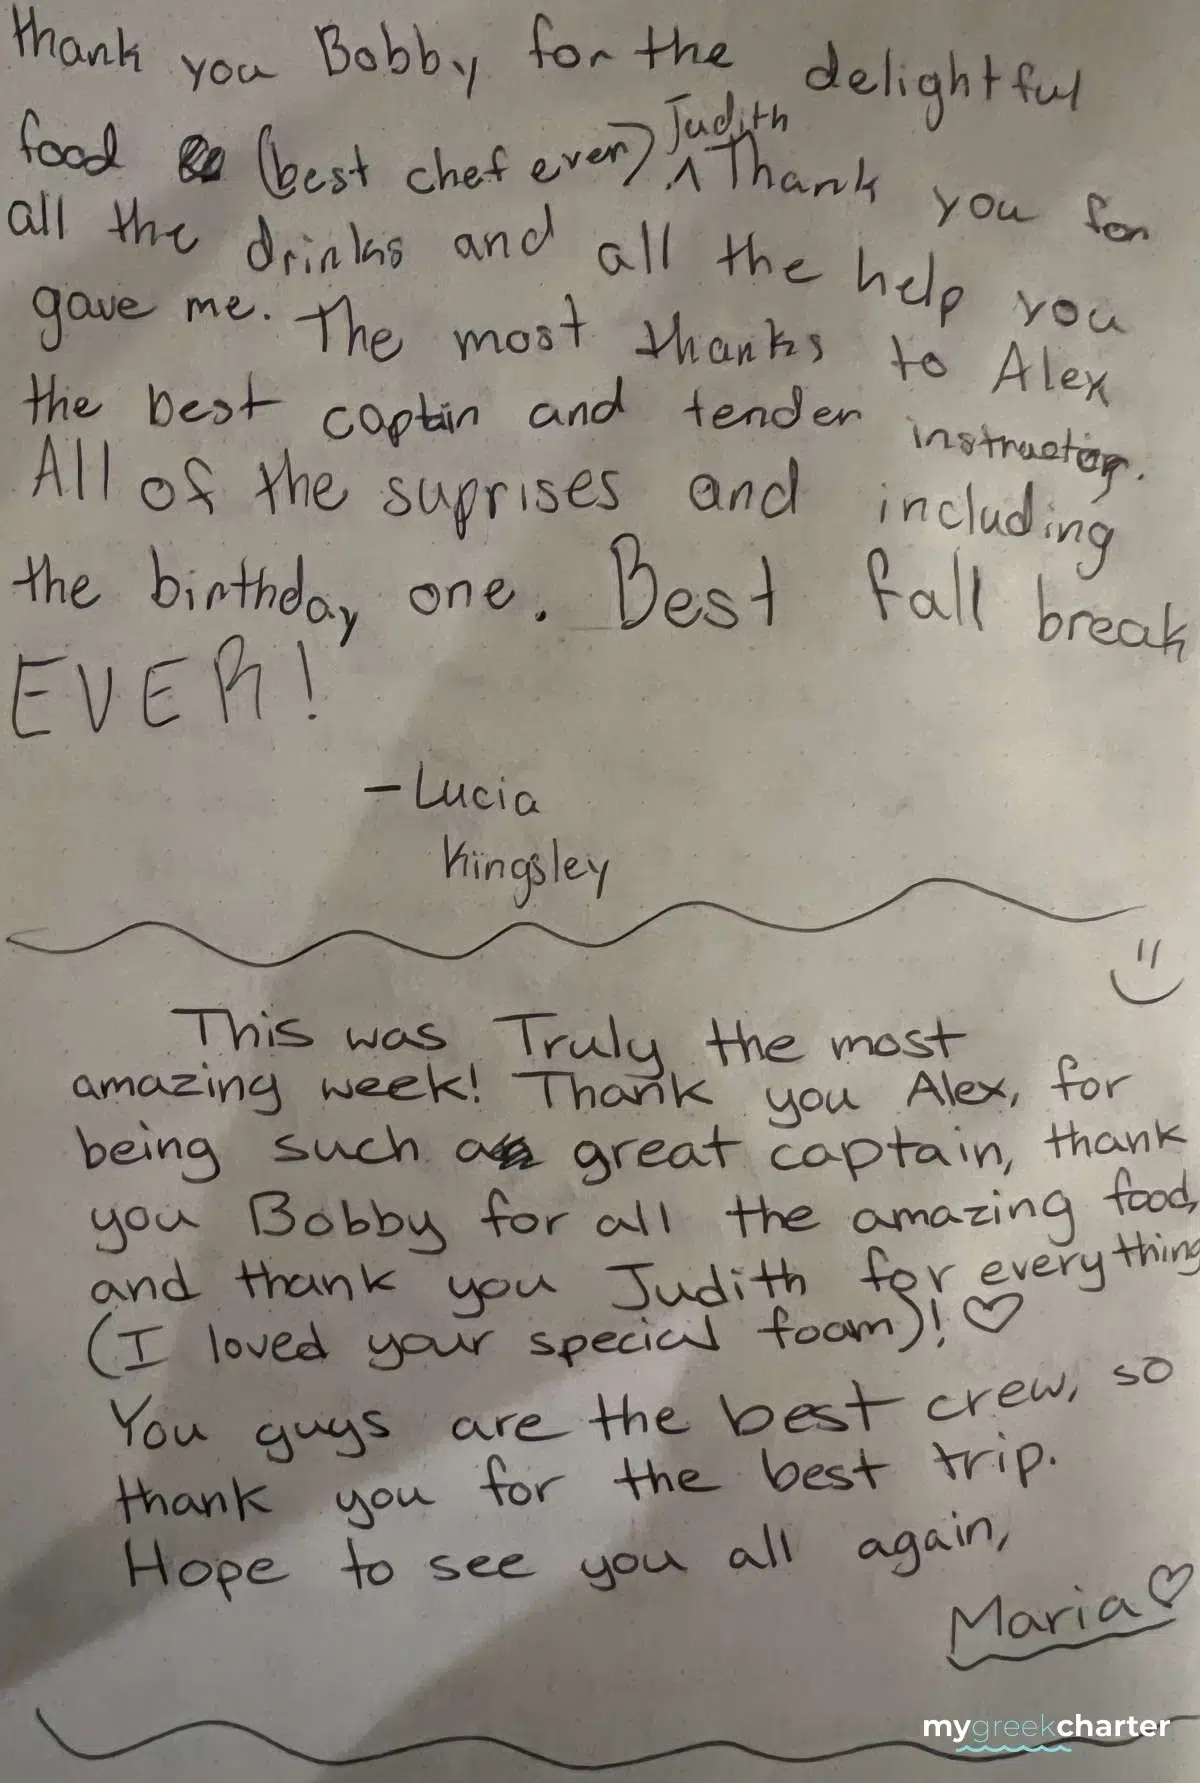 thank you Bobby for the delightful
food (best chef ever) Judith ^ Thank you for
all the drinks and all the help you
gave me. The most thanks to Alex
the best captin and tender instructor.
All of the suprises and including
the birthday one. Best fall break
EVER!
- Lucia
Kingsley
This was Truly the most
amazing week! Thank you Alex, for
being such a great captain, thank
you Bobby for all the amazing food,
and thank you Judith for everything
(I loved your special foam)! ♡
You guys are the best crew, so
thank you for the best trip.
Hope to see you all again,
Maria ♡
mygreekcharter